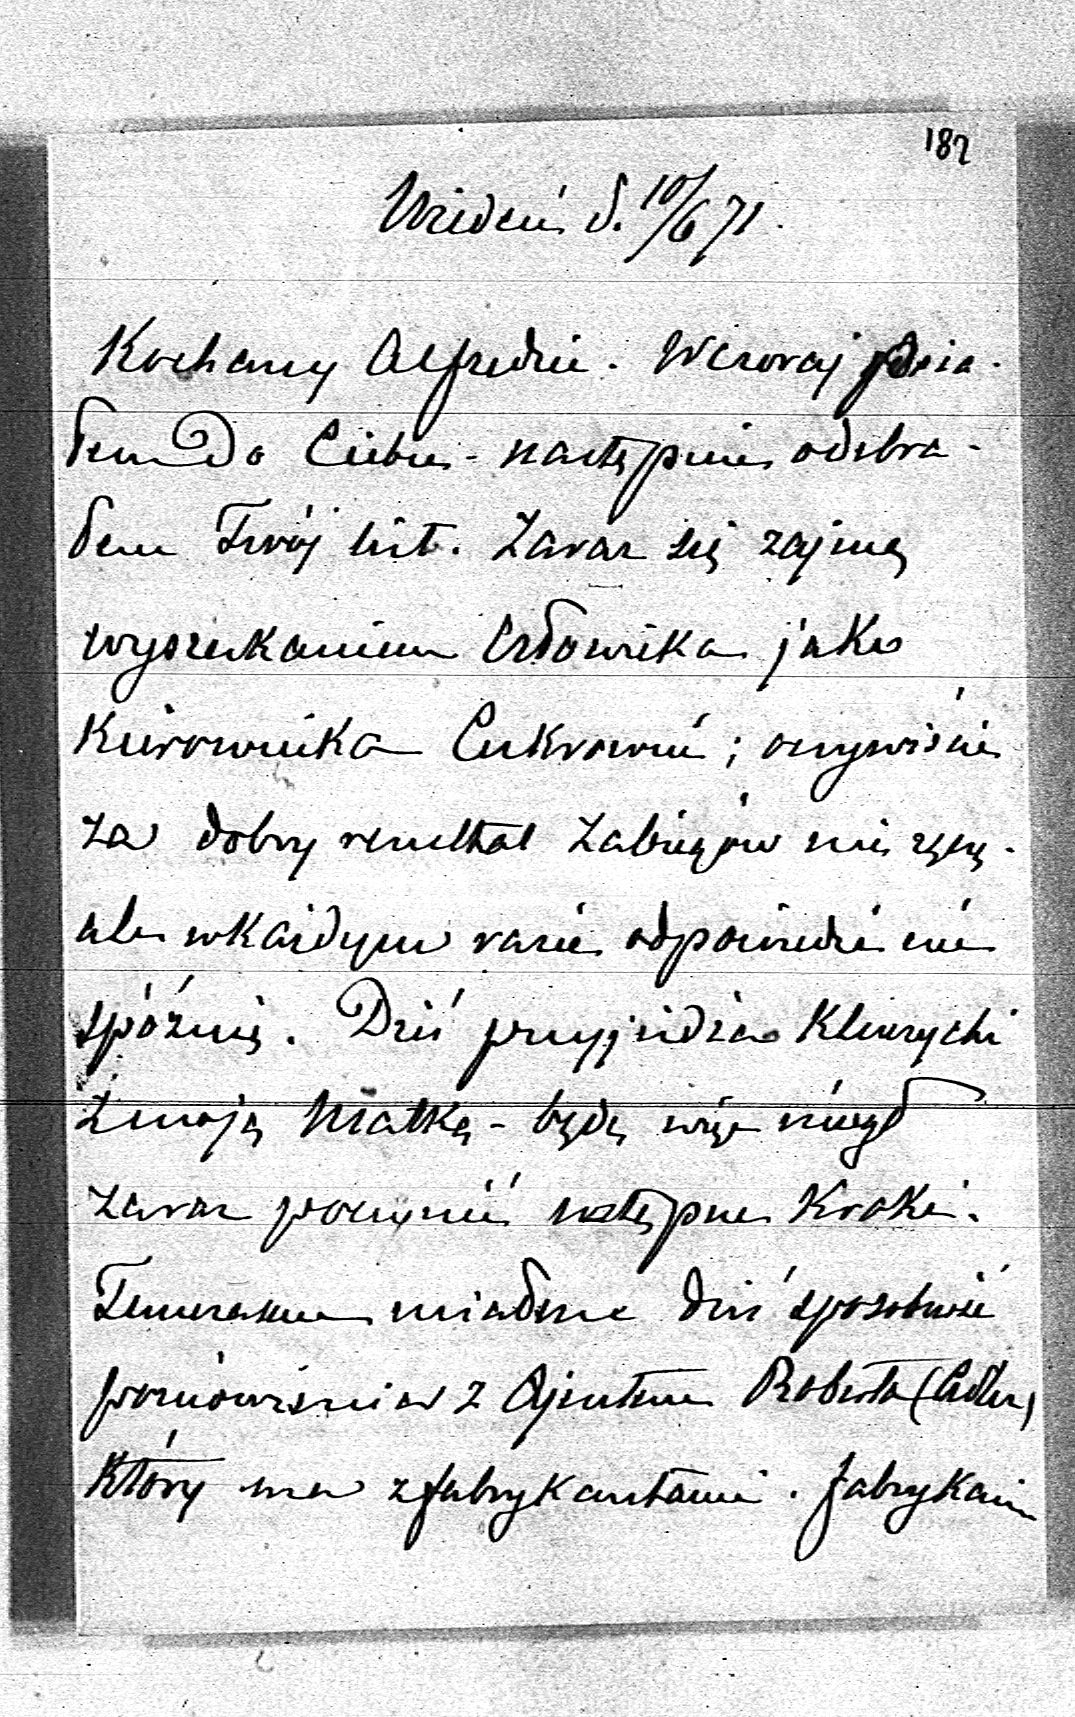 182
Wiedeń d. 10/6 71.
Kochany Alfredzie. Wczoraj pisa-
łem do Ciebie - następnie odebra-
łem Twój list. Zaraz się zajmę
wyszukaniem Człowieka jako
Kierownika Cukrowni; oczywiście
za dobry rezultat zabiegów nie ręczę.
ale wkażdym razie odpowiedzi nie
spóźnię. Dziś przyjeżdża
zmoją Matką - będę więc mógł
zaraz poczynić wstępne Kroki.
Tymczasem miałem dziś sposobność
pomówienia z Ajentem Roberta (Adler)
Który ma zfabrykantami. fabrykam